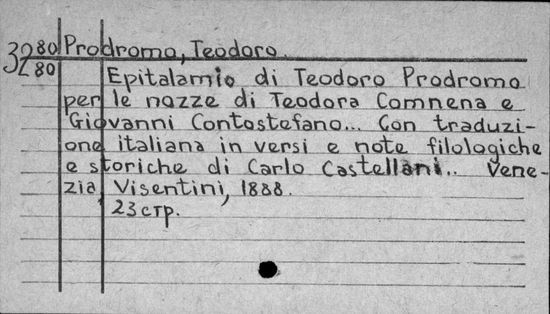 3280 Prodromo, Teodoro.
80 Epitalamio di Teodoro Prodromo
per le nozze di Teodora Comnena e
Giovanni Contostefano... Con traduzi-
one italiana in versi e note filologiche
e storiche di Carlo Castellani.. Vene-
zia, Visentini, 1888.
23 стр.